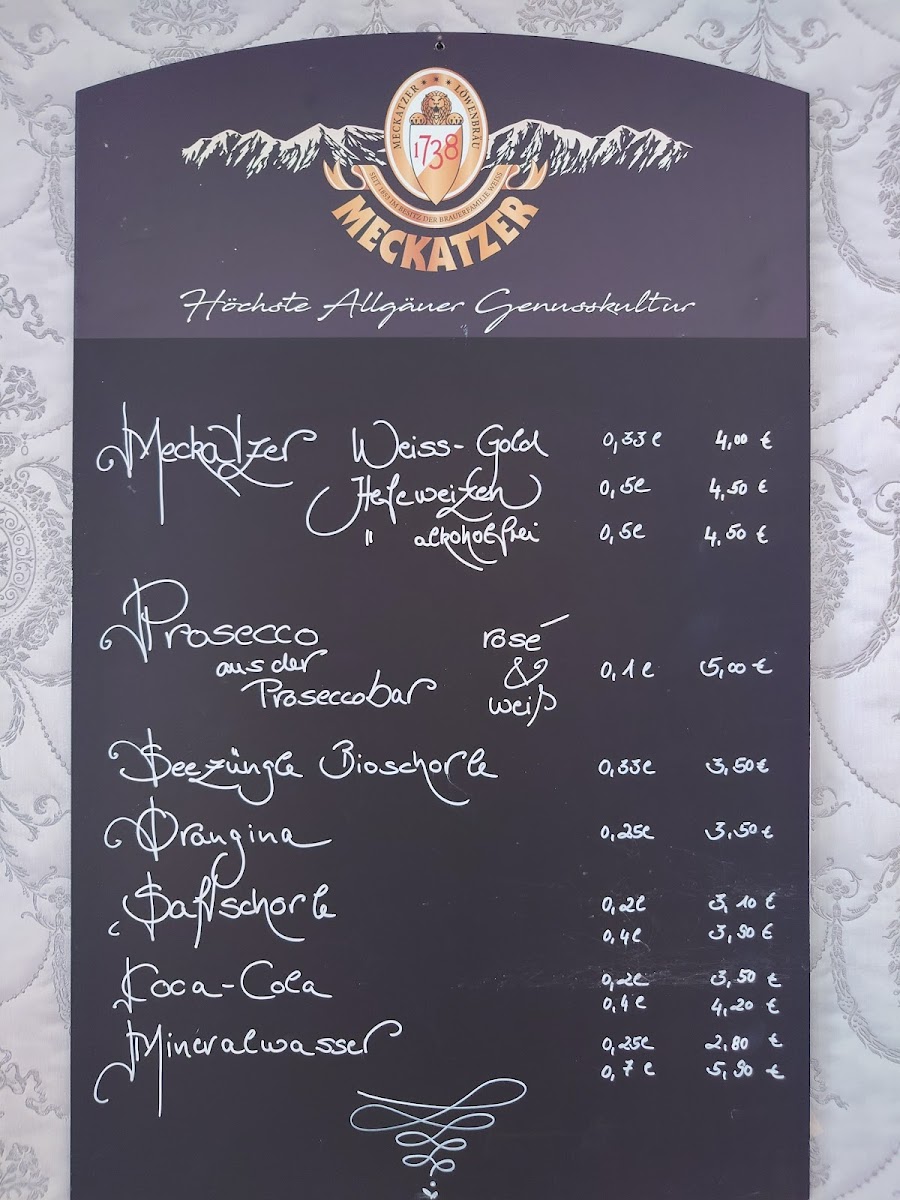 MECKATZER * * * LÖWENBRÄU
1738
SEIT 1853 IM BESITZ DER BRAUERFAMILIE WEISS
MECKATZER
Höchste Allgäuer Genusskultur
Meckatzer Weiss-Gold 0,33l 4,00 €
Hefeweizen 0,5l 4,50 €
" alkoholfrei 0,5l 4,50 €
Prosecco rosé
aus der & 0,1l 5,00 €
Proseccobar weiß
Seezüngle Bioschorle 0,33l 3,50€
Orangina 0,25l 3,50€
Saftschorle 0,2l 3,10 €
0,4l 3,90 €
Coca-Cola 0,2l 3,50 €
0,4l 4,20 €
Mineralwasser 0,25l 2,80 €
0,7l 5,90 €